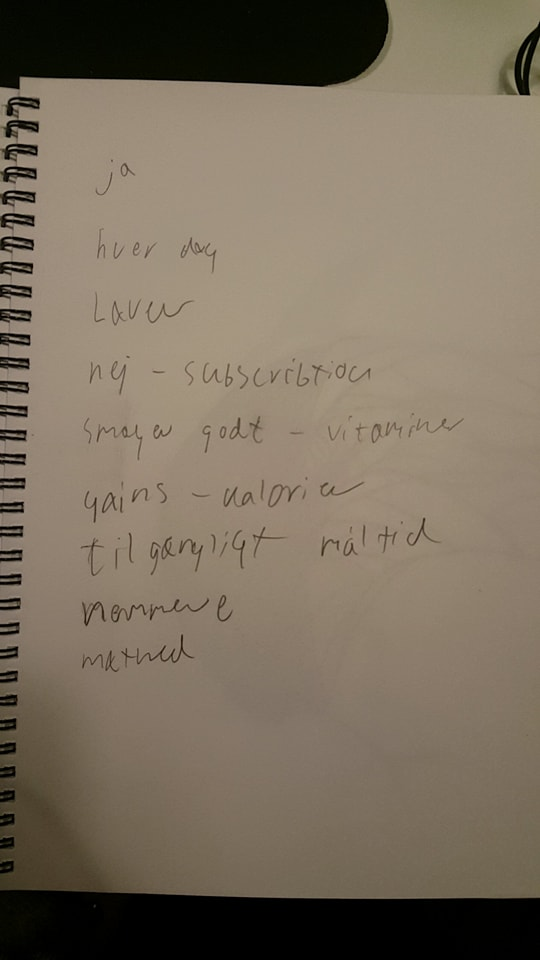 ja
hver dag
Laver
nej - subscribtion
smager godt - vitaminer
gains - kalorier
tilgængligt måltid
nemmere
mæthed